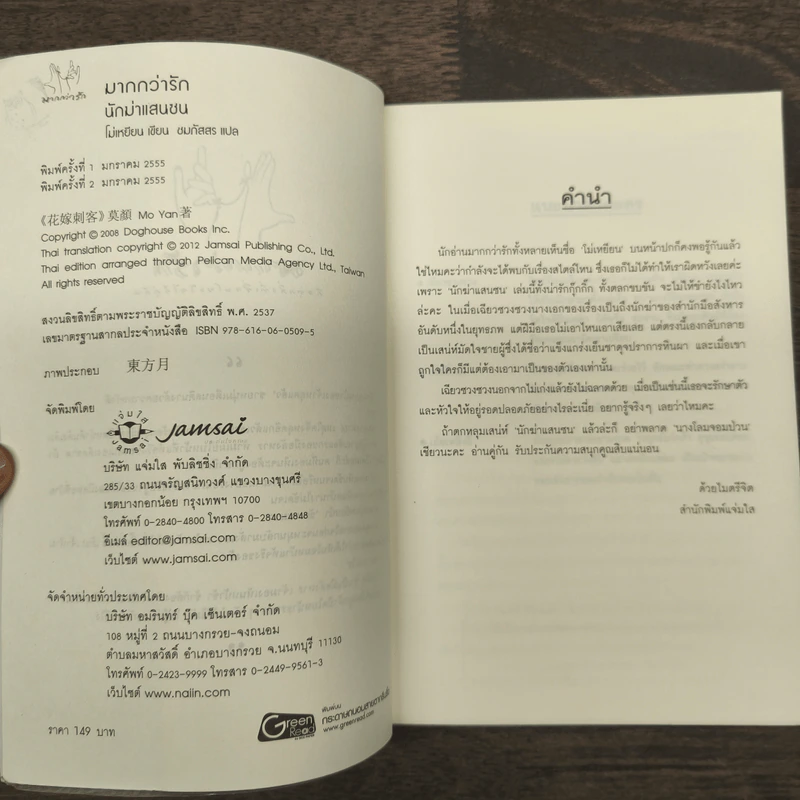 มากกว่ารัก
มากกว่ารัก
นักฆ่าแสนชน
โม่เหยียน เขียน ชมภัสสร แปล
พิมพ์ครั้งที่ 1 มกราคม 2555
พิมพ์ครั้งที่ 2 มกราคม 2555
《花嫁刺客》莫顏 Mo Yan 著
Copyright © 2008 Doghouse Books Inc.
Thai translation copyright © 2012 Jamsai Publishing Co., Ltd.
Thai edition arranged through Pelican Media Agency Ltd., Taiwan
All rights reserved
สงวนลิขสิทธิ์ตามพระราชบัญญัติลิขสิทธิ์ พ.ศ. 2537
เลขมาตรฐานสากลประจำหนังสือ ISBN 978-616-06-0509-5
ภาพประกอบ 東方月
จัดพิมพ์โดย
แจ่มใส
jamsai
jamsai
บริษัท แจ่มใส พับลิชชิ่ง จำกัด
285/33 ถนนจรัญสนิทวงศ์ แขวงบางขุนศรี
เขตบางกอกน้อย กรุงเทพฯ 10700
โทรศัพท์ 0-2840-4800 โทรสาร 0-2840-4848
อีเมล์ editor@jamsai.com
เว็บไซต์ www.jamsai.com
จัดจำหน่ายทั่วประเทศโดย
บริษัท อมรินทร์ บุ๊ค เซ็นเตอร์ จำกัด
108 หมู่ที่ 2 ถนนบางกรวย-จงถนอม
ตำบลมหาสวัสดิ์ อำเภอบางกรวย จ.นนทบุรี 11130
โทรศัพท์ 0-2423-9999 โทรสาร 0-2449-9561-3
เว็บไซต์ www.naiin.com
ราคา 149 บาท
Green Read
พิมพ์บน
กระดาษถนอมสายตากรีนรี้ด
www.greenread.com
คำนำ
นักอ่านมากกว่ารักทั้งหลายเห็นชื่อ 'โม่เหยียน' บนหน้าปกก็คงพอรู้กันแล้ว
ใช่ไหมคะว่ากำลังจะได้พบกับเรื่องสไตล์ไหน ซึ่งเธอก็ไม่ได้ทำให้เราผิดหวังเลยค่ะ
เพราะ 'นักฆ่าแสนชน' เล่มนี้ทั้งน่ารักกุ๊กกิ๊ก ทั้งตลกขบขัน จะไม่ให้ขำยังไงไหว
ล่ะคะ ในเมื่อเฉียวซวงซวงนางเอกของเรื่องเป็นถึงนักฆ่าของสำนักมือสังหาร
อันดับหนึ่งในยุทธภพ แต่ฝีมือเธอไม่เอาไหนเอาเสียเลย แต่ตรงนี้เองกลับกลาย
เป็นเสน่ห์มัดใจชายผู้ซึ่งได้ชื่อว่าแข็งแกร่งเย็นชาดุจปราการหินผา และเมื่อเขา
ถูกใจใครก็มีแต่ต้องเอามาเป็นของตัวเองเท่านั้น
เฉียวซวงซวงนอกจากไม่เก่งแล้วยังไม่ฉลาดด้วย เมื่อเป็นเช่นนี้เธอจะรักษาตัว
และหัวใจให้อยู่รอดปลอดภัยอย่างไรล่ะเนี่ย อยากรู้จริงๆ เลยว่าไหมคะ
ถ้าตกหลุมเสน่ห์ 'นักฆ่าแสนชน' แล้วล่ะก็ อย่าพลาด 'นางโลมจอมป่วน'
เชียวนะคะ อ่านคู่กัน รับประกันความสนุกคูณสิบแน่นอน
ด้วยไมตรีจิต
สำนักพิมพ์แจ่มใส